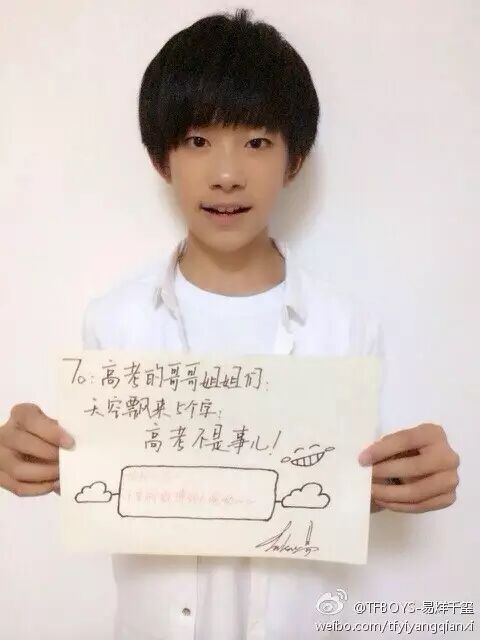 To: 高考的哥哥姐姐们:
天空飘来5个字:
高考不是事儿!
@TFBOYS-易烊千玺
weibo.com/tfyiyangqianxi